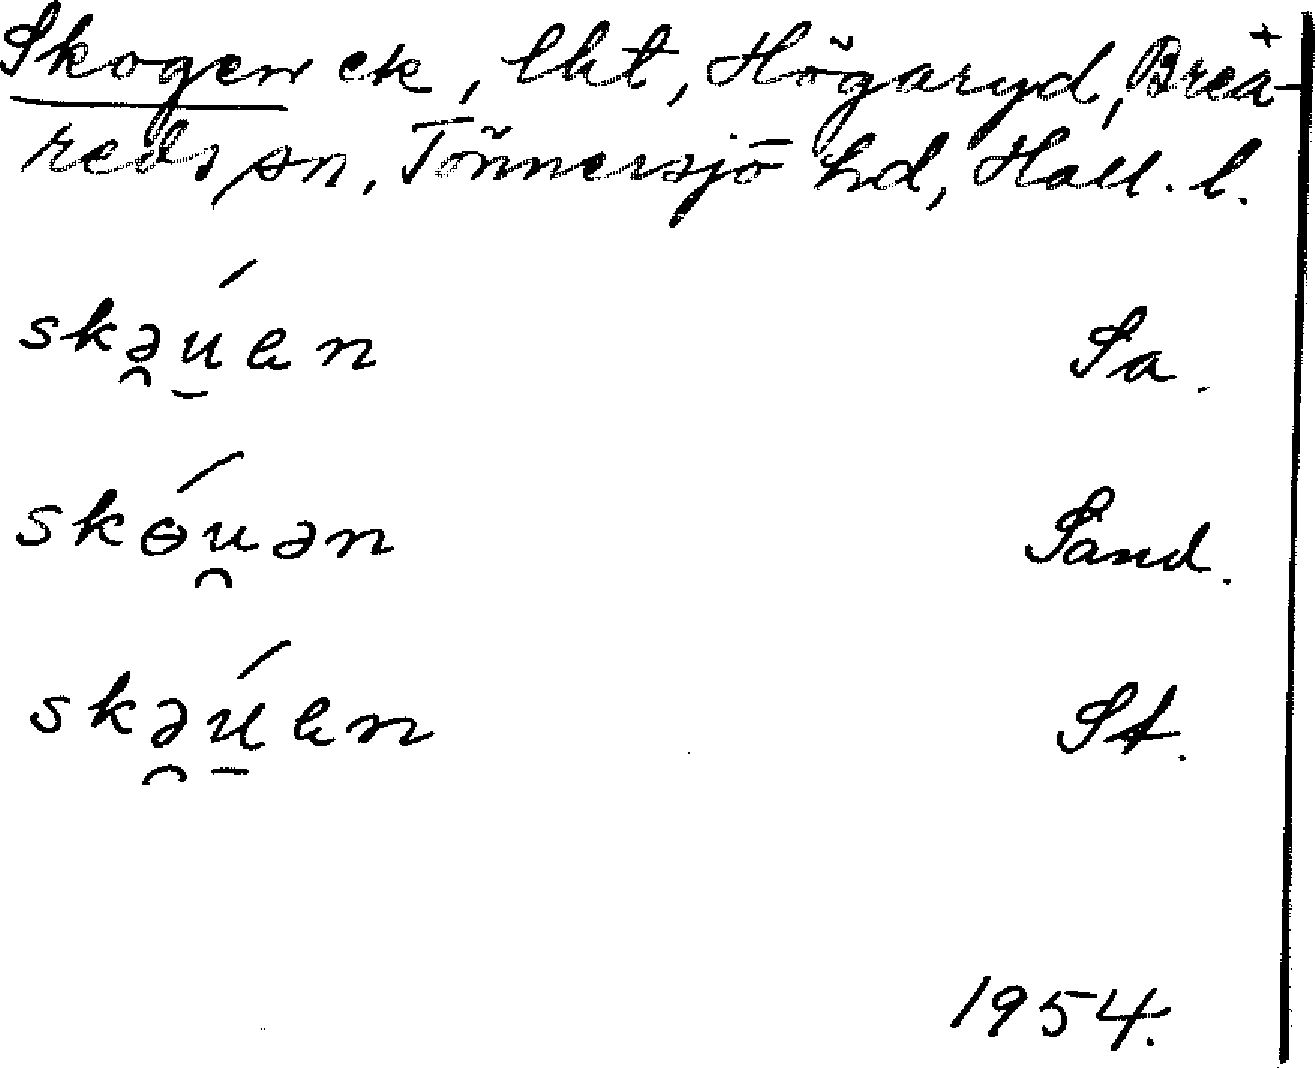 Skogen ek, lht, Högaryd, Brea-
reds sn, Tönnersjö hd, Hall. l.
skə̯ú̠en Sa.
skɵ́u̯ən Sand.
skə̯ú̠en St.
1954.